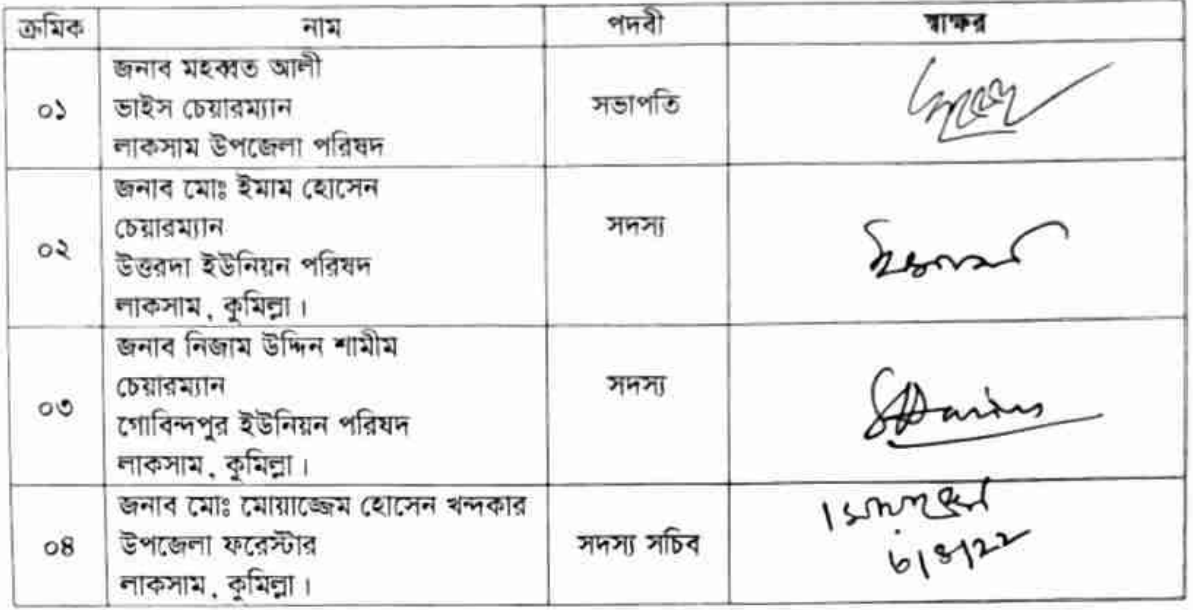 ক্রমিক নাম পদবী স্বাক্ষর
০১ জনাব মহব্বত আলী
ভাইস চেয়ারম্যান
লাকসাম উপজেলা পরিষদ সভাপতি
০২ জনাব মোঃ ইমাম হোসেন
চেয়ারম্যান
উত্তরদা ইউনিয়ন পরিষদ
লাকসাম, কুমিল্লা। সদস্য
০৩ জনাব নিজাম উদ্দিন শামীম
চেয়ারম্যান
গোবিন্দপুর ইউনিয়ন পরিষদ
লাকসাম, কুমিল্লা। সদস্য
০৪ জনাব মোঃ মোয়াজ্জেম হোসেন খন্দকার
উপজেলা ফরেস্টার
লাকসাম, কুমিল্লা। সদস্য সচিব